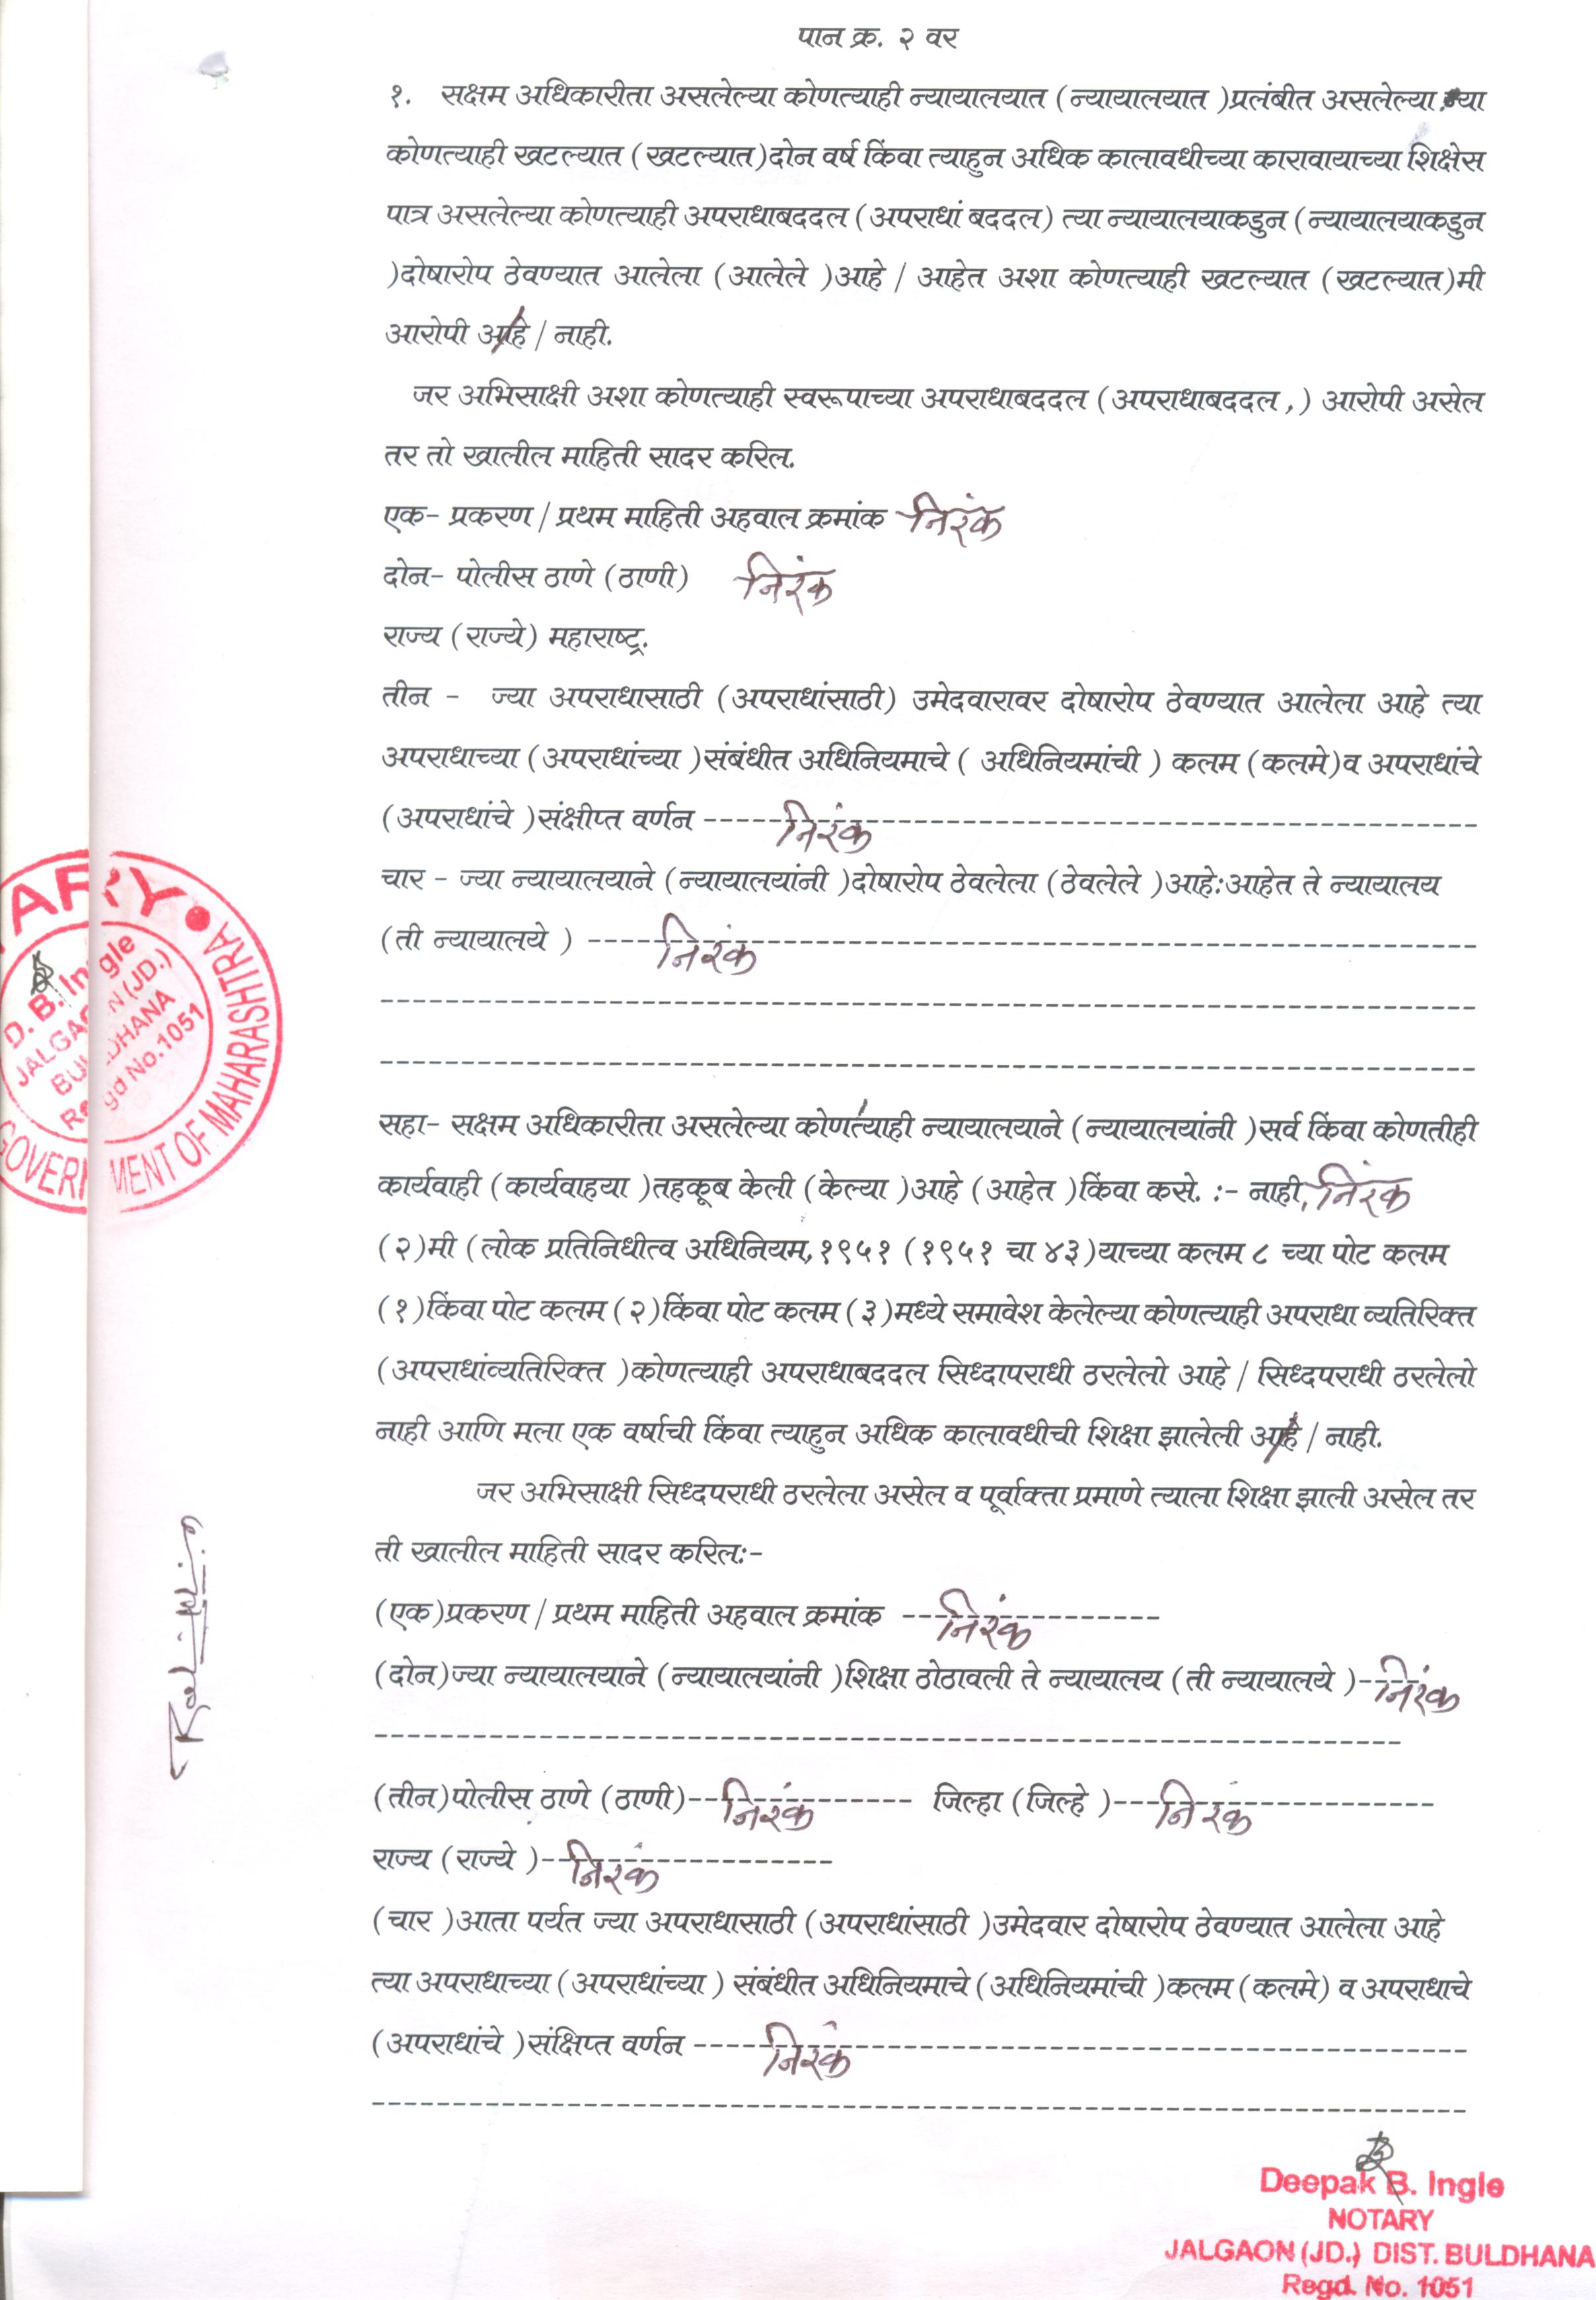 पान क्र. २ वर
१. सक्षम अधिकारीता असलेल्या कोणत्याही न्यायालयात (न्यायालयात )प्रलंबीत असलेल्या ज्या
कोणत्याही खटल्यात (खटल्यात)दोन वर्ष किंवा त्याहुन अधिक कालावधीच्या कारावायाच्या शिक्षेस
पात्र असलेल्या कोणत्याही अपराधाबददल (अपराधां बददल) त्या न्यायालयाकडुन (न्यायालयाकडुन
)दोषारोप ठेवण्यात आलेला (आलेले )आहे / आहेत अशा कोणत्याही खटल्यात (खटल्यात)मी
आरोपी आहे / नाही.
जर अभिसाक्षी अशा कोणत्याही स्वरूपाच्या अपराधाबददल (अपराधाबददल,) आरोपी असेल
तर तो खालील माहिती सादर करिल.
एक- प्रकरण / प्रथम माहिती अहवाल क्रमांक निरंक
दोन- पोलीस ठाणे (ठाणी) निरंक
राज्य (राज्ये) महाराष्ट्र.
तीन - ज्या अपराधासाठी (अपराधांसाठी) उमेदवारावर दोषारोप ठेवण्यात आलेला आहे त्या
अपराधाच्या (अपराधांच्या )संबंधीत अधिनियमाचे ( अधिनियमांची ) कलम (कलमे)व अपराधांचे
(अपराधांचे )संक्षीप्त वर्णन ------निरंक------
चार - ज्या न्यायालयाने (न्यायालयांनी )दोषारोप ठेवलेला (ठेवलेले )आहे:आहेत ते न्यायालय
(ती न्यायालये ) ------निरंक------
सहा- सक्षम अधिकारीता असलेल्या कोणत्याही न्यायालयाने (न्यायालयांनी )सर्व किंवा कोणतीही
कार्यवाही (कार्यवाहया )तहकूब केली (केल्या )आहे (आहेत )किंवा कसे. :- नाही, निरंक
(२)मी (लोक प्रतिनिधीत्व अधिनियम,१९५१ (१९५१ चा ४३)याच्या कलम ८ च्या पोट कलम
(१)किंवा पोट कलम (२)किंवा पोट कलम (३)मध्ये समावेश केलेल्या कोणत्याही अपराधा व्यतिरिक्त
(अपराधांव्यतिरिक्त )कोणत्याही अपराधाबददल सिध्दापराधी ठरलेलो आहे / सिध्दपराधी ठरलेलो
नाही आणि मला एक वर्षाची किंवा त्याहुन अधिक कालावधीची शिक्षा झालेली आहे / नाही.
जर अभिसाक्षी सिध्दपराधी ठरलेला असेल व पूर्वाक्ता प्रमाणे त्याला शिक्षा झाली असेल तर
ती खालील माहिती सादर करिल:-
(एक)प्रकरण / प्रथम माहिती अहवाल क्रमांक ---निरंक------
(दोन)ज्या न्यायालयाने (न्यायालयांनी )शिक्षा ठोठावली ते न्यायालय (ती न्यायालये )--निरंक
(तीन)पोलीस ठाणे (ठाणी)--निरंक------ जिल्हा (जिल्हे )---निरंक------
राज्य (राज्ये )--निरंक------
(चार )आता पर्यत ज्या अपराधासाठी (अपराधांसाठी )उमेदवार दोषारोप ठेवण्यात आलेला आहे
त्या अपराधाच्या (अपराधांच्या ) संबंधीत अधिनियमाचे (अधिनियमांची )कलम (कलमे) व अपराधाचे
(अपराधांचे )संक्षिप्त वर्णन -----निरंक------
Deepak B. Ingle
NOTARY
JALGAON (JD.) DIST. BULDHANA
Regd. No. 1051
GOVERNMENT OF MAHARASHTRA